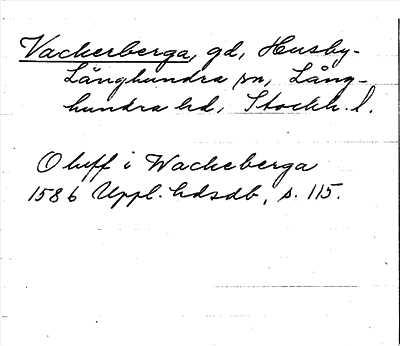 Vackerberga, gd, Husby-
Långhundra sn, Lång-
hundra hd, Stockh. l.
Oluff i Wackeberga
1586 Uppl. hdsdb, s. 115.